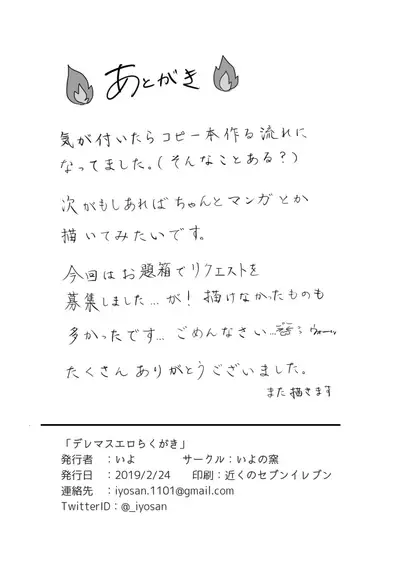 あとがき
気が付いたらコピー本作る流れに
なってました。(そんなことある?)
次がもしあればちゃんとマンガとか
描いてみたいです。
今回はお題箱でリクエストを
募集しました…が！描けなかったものも
多かったです… ごめんなさい…
たくさんありがとうございました。
また描きます
「デレマスエロらくがき」
発行者　：いよ　　　サークル：いよの窯
発行日　：2019/2/24　　印刷：近くのセブンイレブン
連絡先　：iyosan.1101@gmail.com
TwitterID：@_iyosan